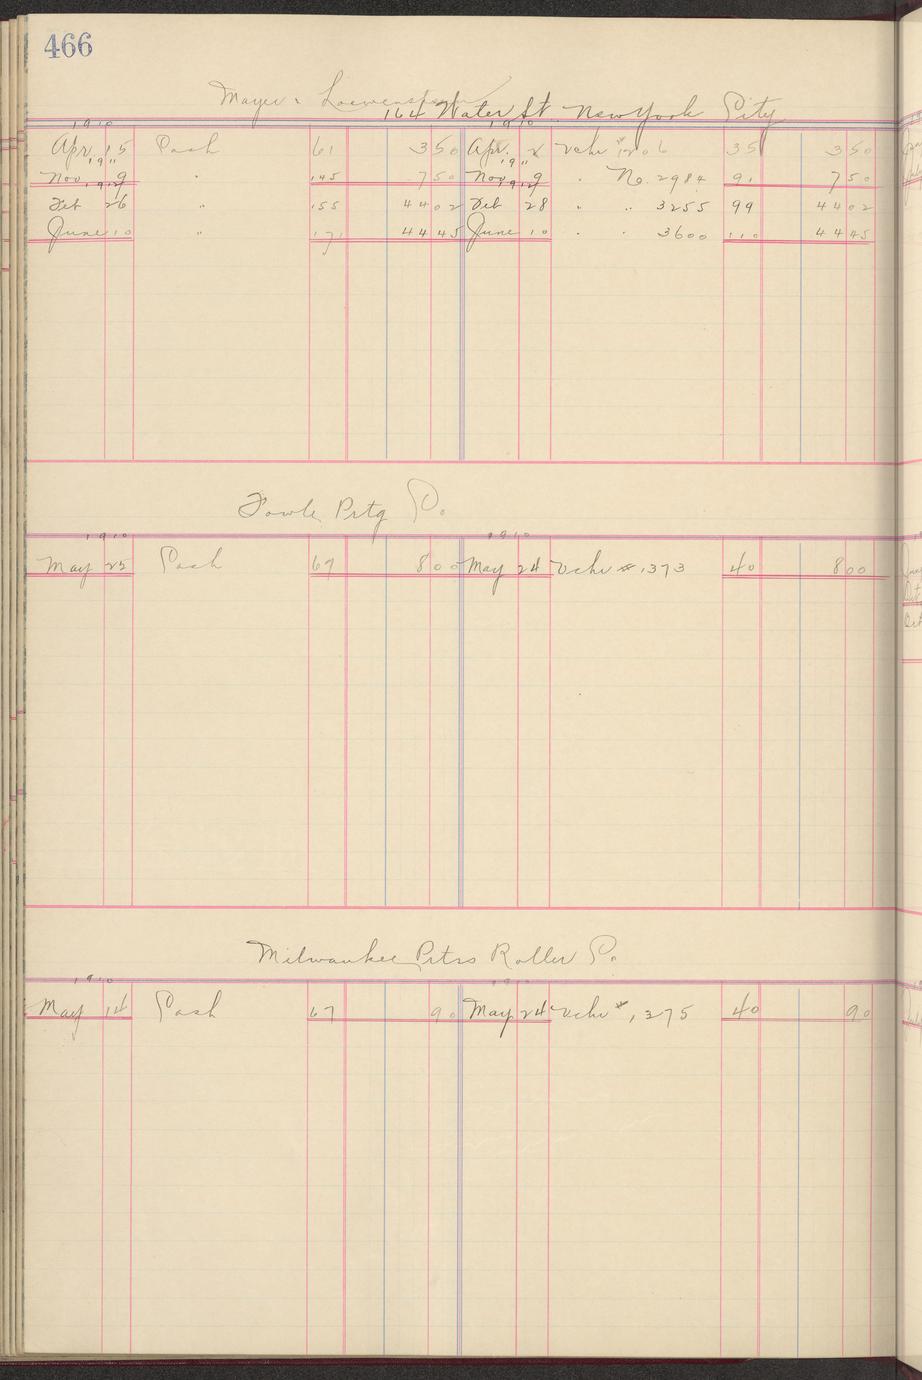 466
Mayer & Loewenstein
164 Water St. New York City
1910 1910
Apr. 15 Cash 61 3 50 Apr. 2 Vchr # 1206 35 3 50
1911 1911
Nov. 9 " 145 7 50 Nov. 9 " No. 2984 91 7 50
1912 1912
Feb 26 " 155 44 02 Feb 28 " " 3255 99 44 02
June 10 " 171 44 45 June 10 " " 3600 110 44 45
Fowle Prtg Co.
1910 1910
May 25 Cash 69 8 00 May 24 Vchr # 1373 40 8 00
Milwaukee Prtrs Roller Co.
1910 1910
May 14 Cash 67 90 May 24 Vchr # 1375 40 90